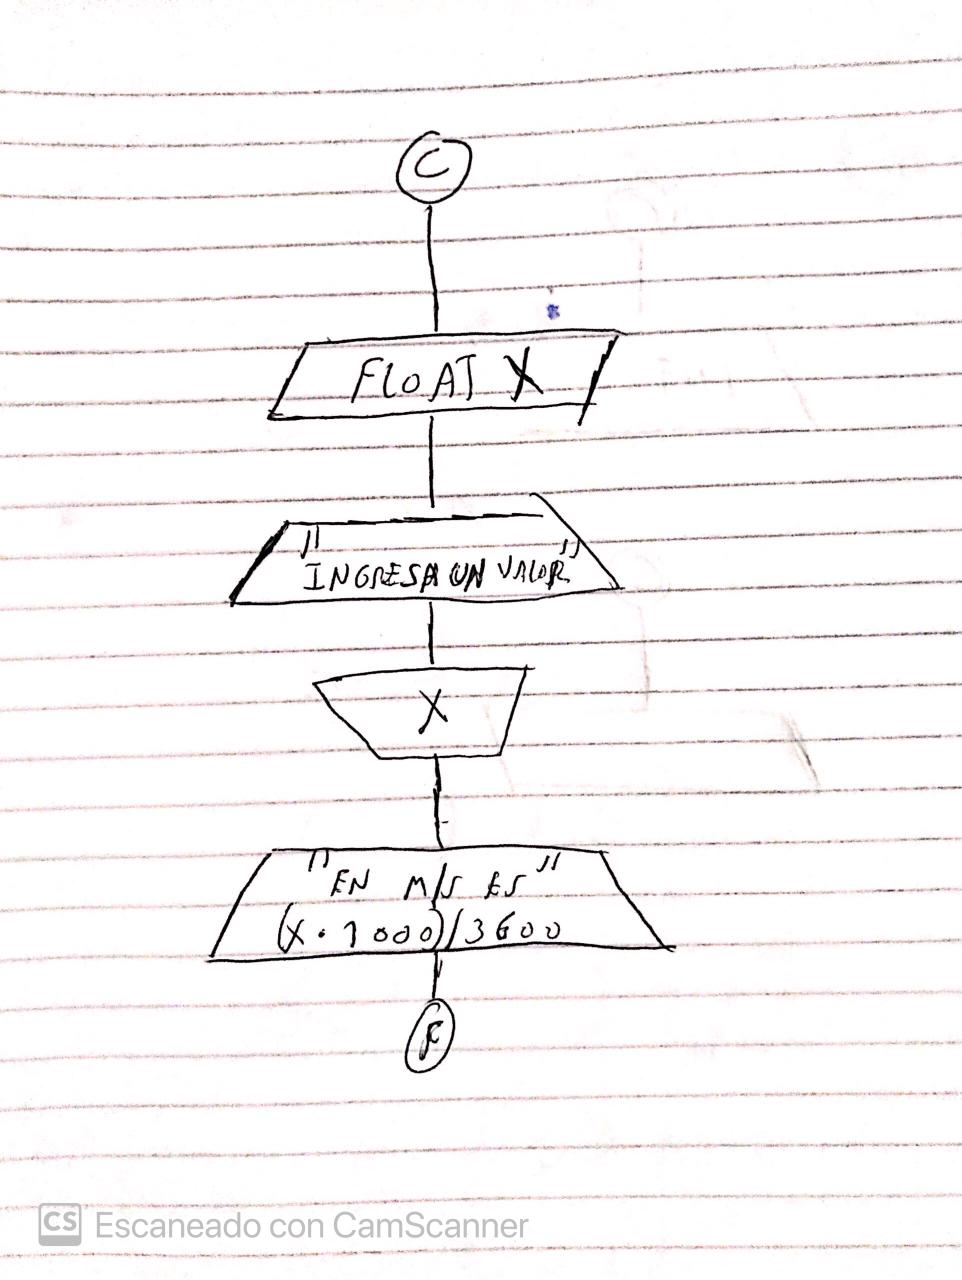 C
FLOAT X
"INGRESA UN VALOR"
X
"EN M/S ES"
(X · 1000)/3600
F
CS Escaneado con CamScanner